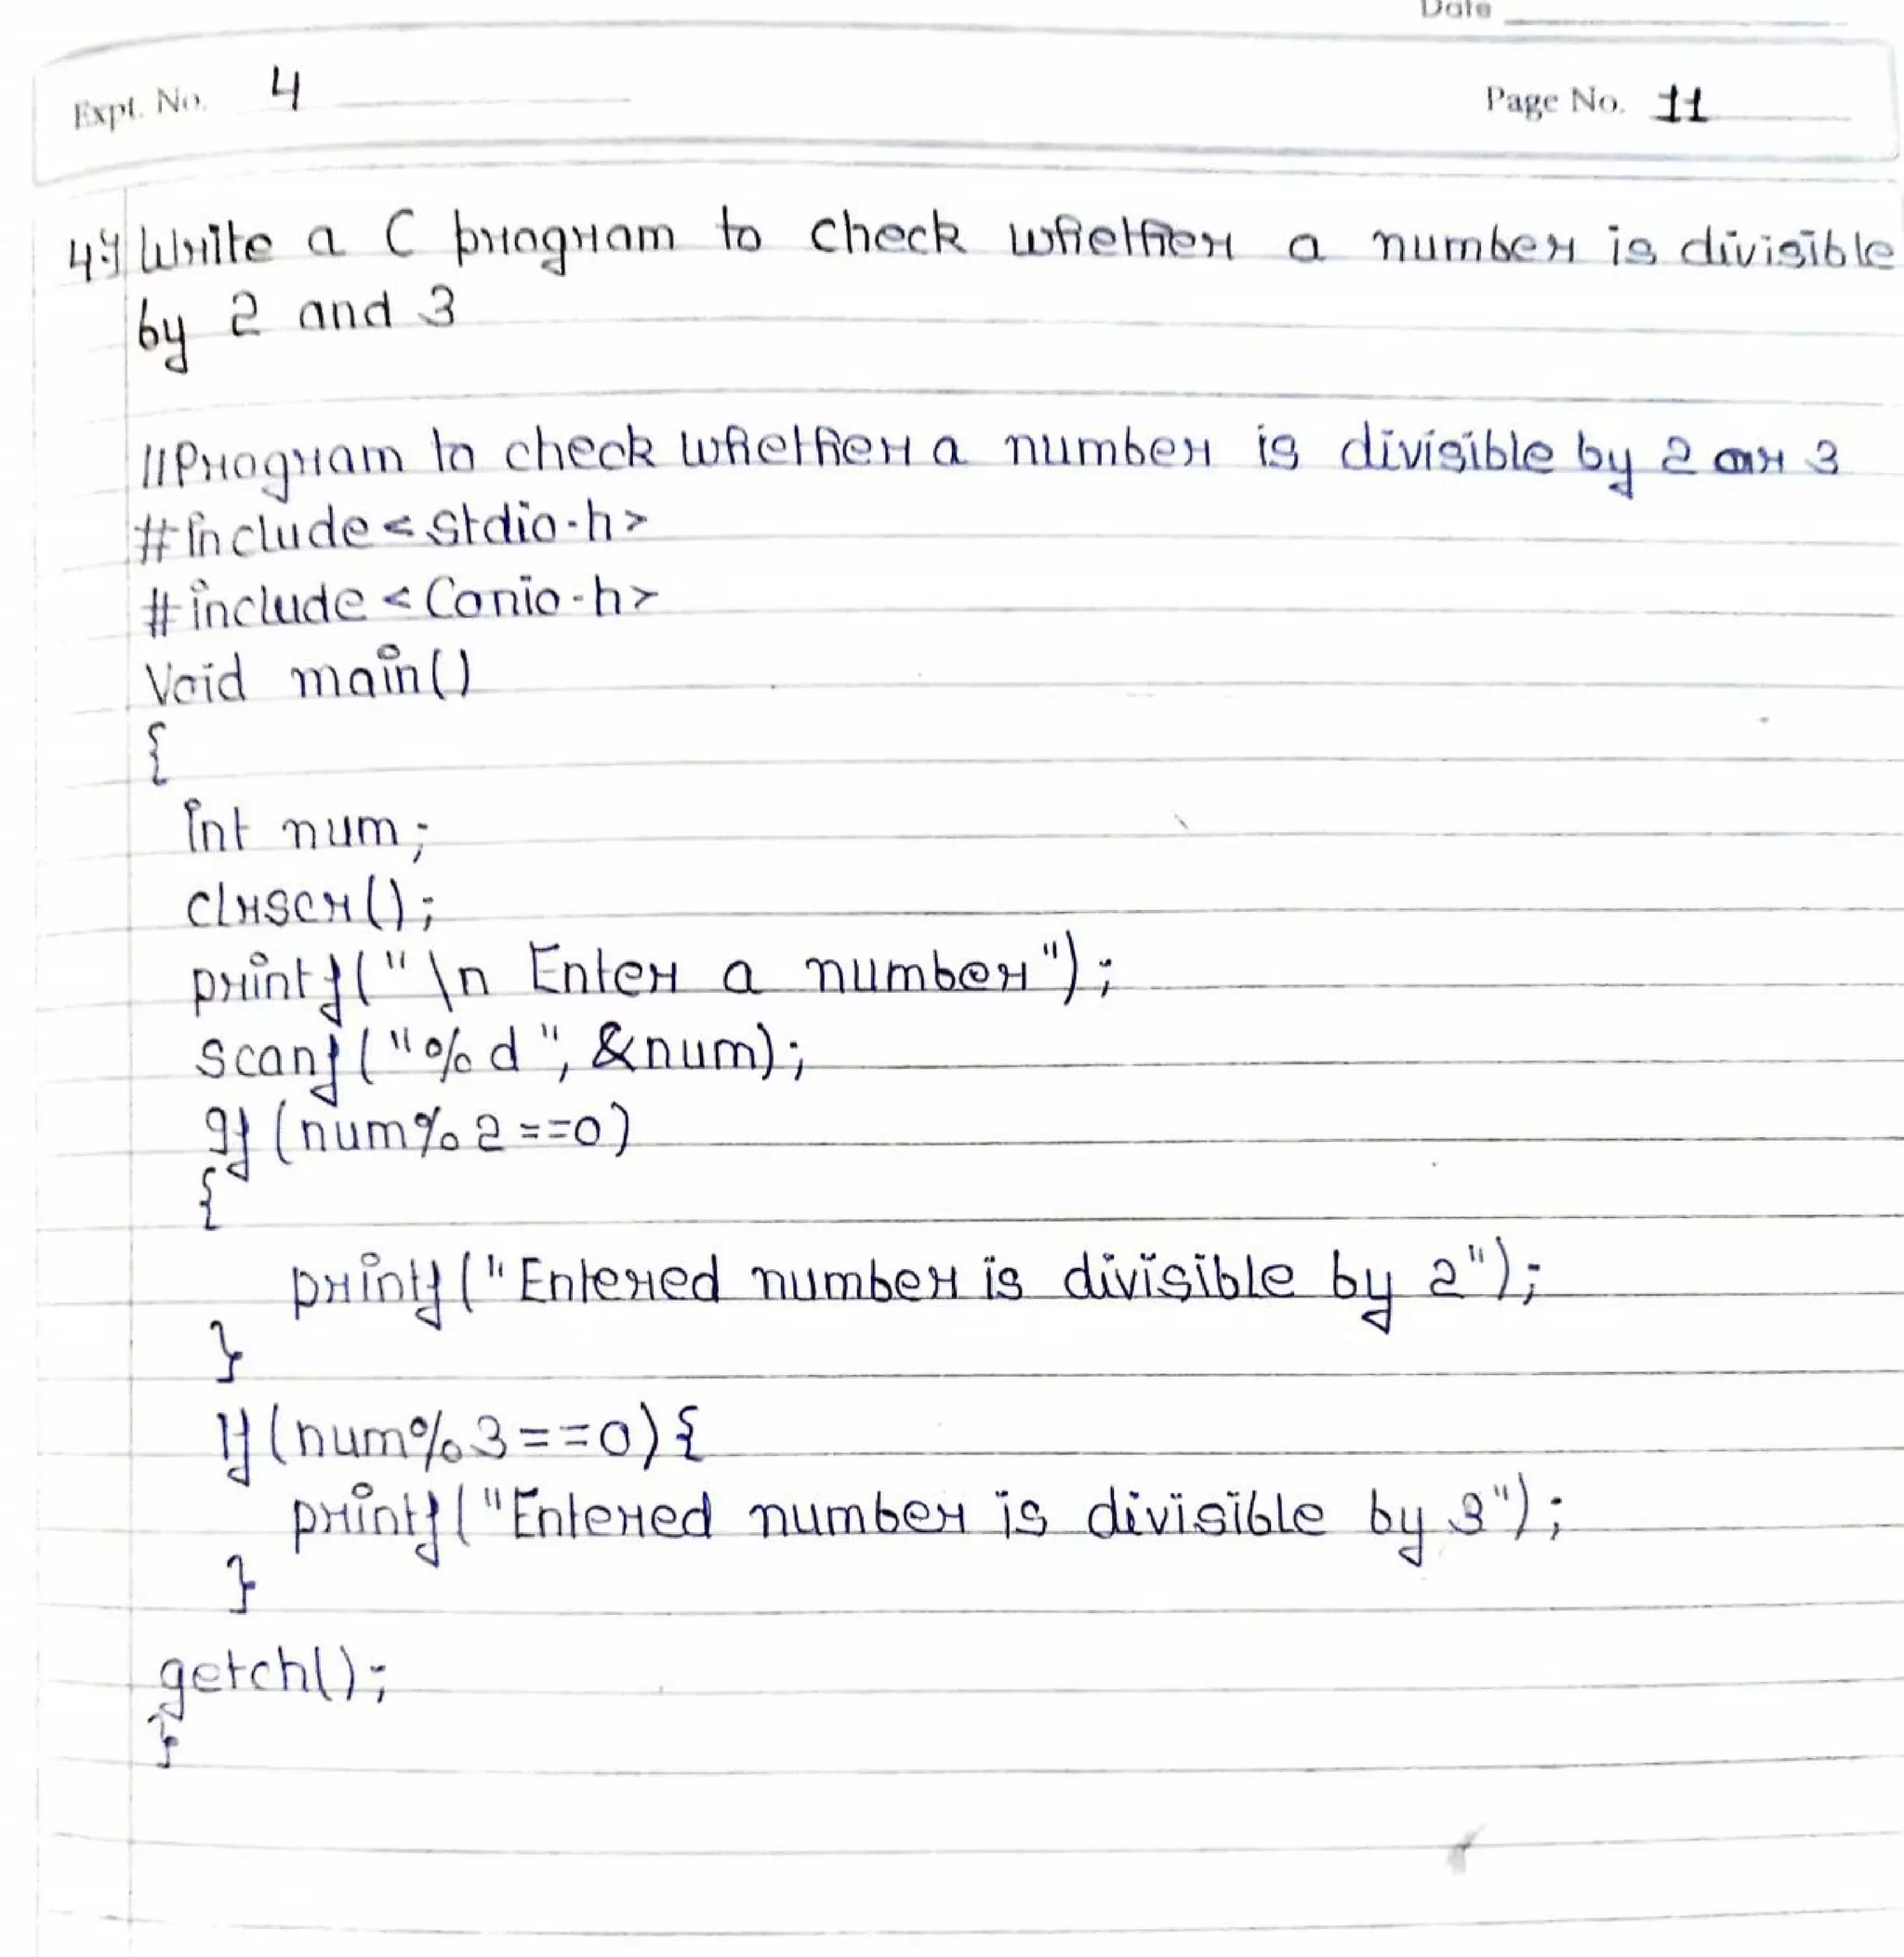 Date
Expt. No. 4
Page No. 11
4.) Write a C program to check whether a number is divisible
by 2 and 3
//Program to check whether a number is divisible by 2 or 3
#include<stdio.h>
#include<Conio.h>
Void main()
{
int num;
clrscr();
printf("\n Enter a number");
scanf("%d", &num);
If (num%2==0)
{
printf("Entered number is divisible by 2");
}
If(num%3==0){
printf("Entered number is divisible by 3");
}
getch();
}